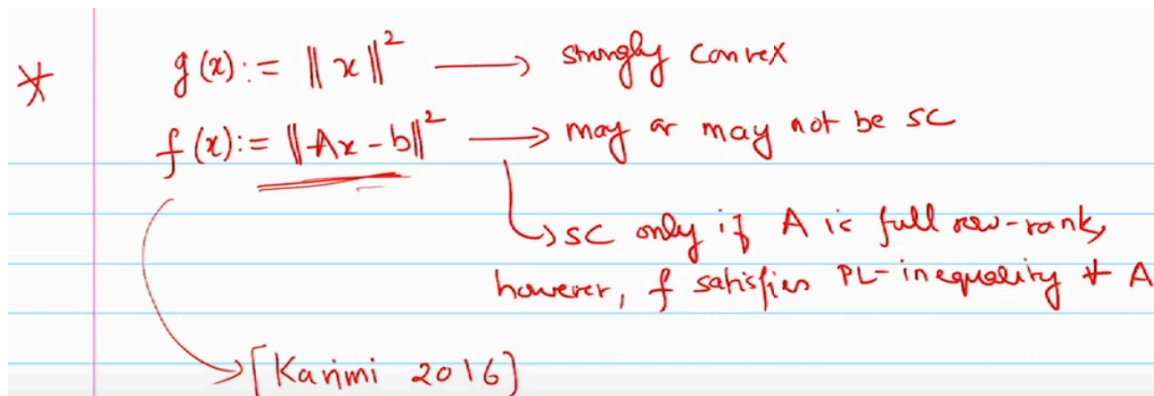 * g(x) := ||x||² → strongly convex
f(x) := ||Ax - b||² → may or may not be SC
↳ SC only if A is full row-rank,
however, f satisfies PL-inequality ∀ A
→ [Karimi 2016]